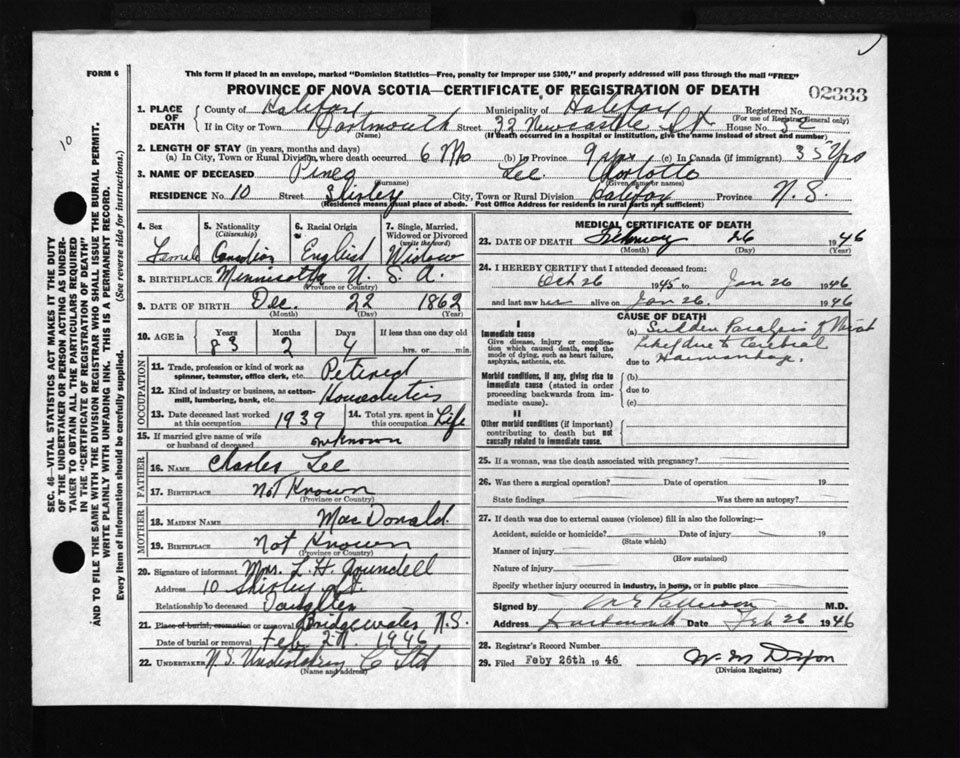 FORM 6
This form if placed in an envelope, marked "Dominion Statistics—Free, penalty for improper use $300," and properly addressed will pass through the mail "FREE"
PROVINCE OF NOVA SCOTIA—CERTIFICATE OF REGISTRATION OF DEATH
02333
10
1. PLACE OF DEATH
County of Halifax Municipality of Halifax Registered No.
(For use of Registrar General only)
If in City or Town Dartmouth Street 32 Newcastle St House No. 32
(Name) (If death occurred in a hospital or institution, give the name instead of street and number)
2. LENGTH OF STAY (in years, months and days)
(a) In City, Town or Rural Division, where death occurred 6 Mo (b) In Province 9 yrs (c) In Canada (if immigrant) 35 Yrs
3. NAME OF DECEASED Lee Charlotte
(Surname) (Given name or names)
RESIDENCE No. 10 Street Shirley City, Town or Rural Division Halifax Province N.S.
(Residence means usual place of abode. Post Office Address for residents in rural parts not sufficient)
4. Sex Female
5. Nationality (Citizenship) Canadian
6. Racial Origin English
7. Single, Married, Widowed or Divorced (write the word) Widow
8. BIRTHPLACE Minnisotha U.S.A.
(Province or Country)
9. DATE OF BIRTH Dec. 22 1862
(Month) (Day) (Year)
10. AGE in Years Months Days If less than one day old
83 2 4 hrs. or min.
OCCUPATION
11. Trade, profession or kind of work as spinner, teamster, office clerk, etc. Retired
12. Kind of industry or business, as cotton-mill, lumbering, bank, etc. Houseduties
13. Date deceased last worked at this occupation 1939
14. Total yrs. spent in this occupation Life
15. If married give name of wife or husband of deceased unknown
FATHER
16. NAME Charles Lee
17. BIRTHPLACE Not Known
(Province or Country)
MOTHER
18. MAIDEN NAME MacDonald
19. BIRTHPLACE Not Known
(Province or Country)
20. Signature of informant Mrs. L. H.
Address 10 Shirley St.
Relationship to deceased Daughter
21. Place of burial, cremation or removal Bridgewater N.S.
Date of burial or removal Feb. 27 1946
22. UNDERTAKER N.S. Undertaking Co Ltd
(Name and address)
MEDICAL CERTIFICATE OF DEATH
23. DATE OF DEATH February 26 1946
(Month) (Day) (Year)
24. I HEREBY CERTIFY that I attended deceased from:
Oct 26 1945 to Jan 26 1946
and last saw her alive on Jan 26. 1946
CAUSE OF DEATH
I
Immediate cause
Give disease, injury or complication which caused death, not the mode of dying, such as heart failure, asphyxia, asthenia, etc.
(a) Sudden Paralysis of
due to Cerebral
due to Haemorrhage.
Morbid conditions, if any, giving rise to immediate cause (stated in order proceeding backwards from immediate cause).
(b)
due to
(c)
II
Other morbid conditions (if important) contributing to death but not causally related to immediate cause.
25. If a woman, was the death associated with pregnancy?
26. Was there a surgical operation? Date of operation 19
State findings Was there an autopsy?
27. If death was due to external causes (violence) fill in also the following:—
Accident, suicide or homicide? Date of injury 19
(State which)
Manner of injury
(How sustained)
Nature of injury
Specify whether injury occurred in industry, in home, or in public place
Signed by M.D.
Address Dartmouth Date Feb 26 1946
28. Registrar's Record Number
29. Filed Feby 26th 1946 W. M. Dixon
(Division Registrar)
SEC. 46—VITAL STATISTICS ACT MAKES IT THE DUTY
OF THE UNDERTAKER OR PERSON ACTING AS UNDER-
TAKER TO OBTAIN ALL THE PARTICULARS REQUIRED
IN THE "CERTIFICATE OF REGISTRATION OF DEATH"
AND TO FILE THE SAME WITH THE DIVISION REGISTRAR WHO SHALL ISSUE THE BURIAL PERMIT.
WRITE PLAINLY WITH UNFADING INK. THIS IS A PERMANENT RECORD.
Every item of information should be carefully supplied. (See reverse side for instructions.)